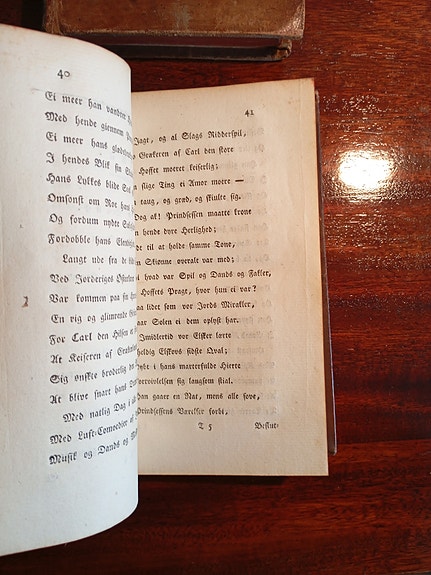 40
Ei meer han vandrer
Med hende giennem
Ei meer hans glædes
I hendes Blik sin
Hans Lykkes blide Sol
Omsonst om Roe han
Og fordum nydte
Fordoble hans Elendig
Langt ude fra de
Ved Jorderigs Osterleed
Var kommen paa sin
En rig og glimrende
For Carl den
At Keiseren af
Sig ønskte broderlig
At blive snart hans
Med natlig Dag i
Med Lust-Comoedier af
Musik og Dands og
41
Jagt, og al Slags Ridderspil,
Grækeren af Carl den store
Hoffet moeret keiserlig;
slige Ting ei Amor moere —
taug, og græd, og skiulte sig.
Dog ak! Prindsessen maatte krone
hendes dyre Herlighed;
de til at holde samme Tone,
Skionne overalt var med;
hvad var Spil og Dands og Fakler,
Hoffets Pragt, hvor hun ei var?
saa lidet som vor Jords Mirakler,
naar Solen ei dem oplyst har.
Imidlertid vor Elsker lærte
Elskovs sidste Qval;
dybt i hans marterfulde Hierte
Fortvivlelsen sig langsom stial.
Han gaaer en Nat, mens alle sove,
Prindsessens Værelser forbi,
T 5 Beslut-